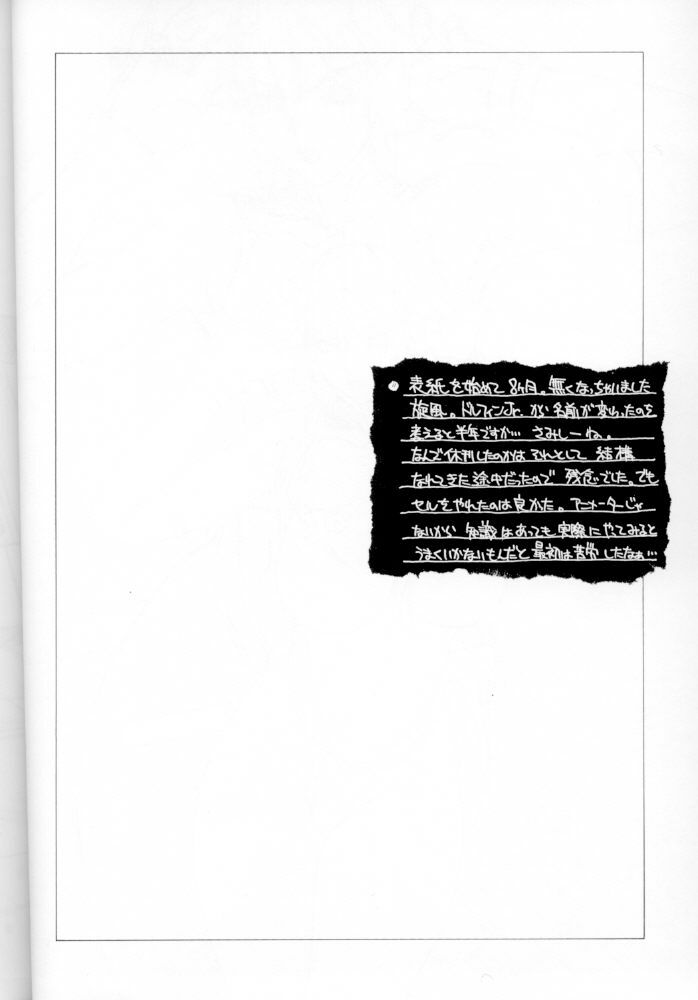 ●表紙を始めて8ヶ月。無くなっちゃいました
旋風。ドルフィンJr.から名前が変わったのを
考えると半年ですが… さみしーね。
なんで休刊したのかは それとして 結構
なれてきた途中だったので 残念でした。でも
セルをやれたのは良かった。アニメーターじゃ
ないから 知識はあっても実際にやってみると
うまくいかないもんだと 最初は苦労したなぁ…